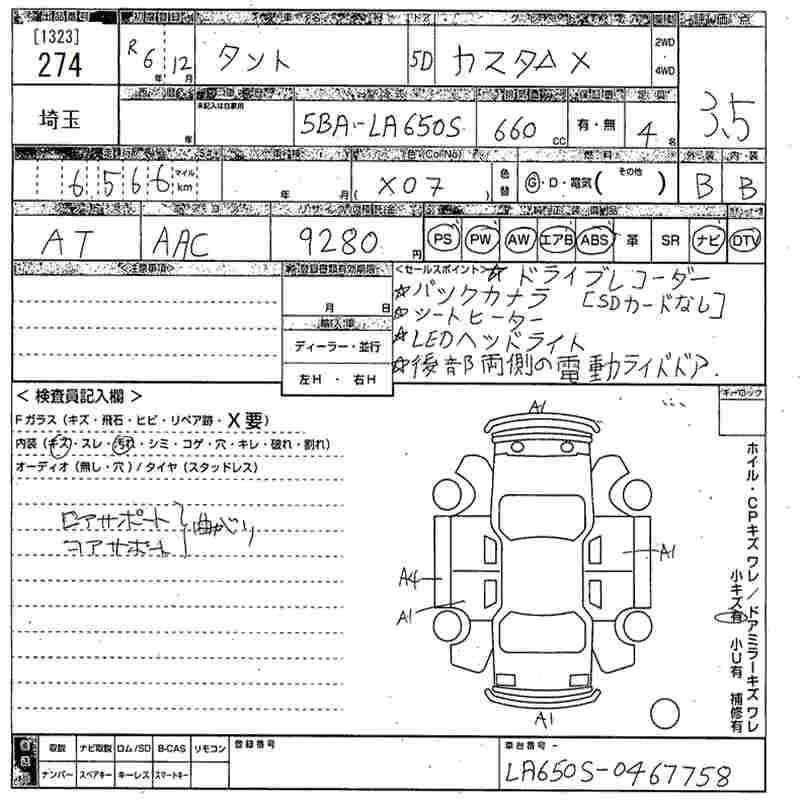 出品番号 初度登録日 車名 ドア 車検 評価点
[1323]
274
R6年 12月 タント 5D カスタム X 2WD・4WD
3.5
埼玉
年 未記入は自家用 5BA-LA650S 660cc 有・無 4名
外装 内装
6566 マイル km 年 月 ( X07 ) 色替 G・D・電気( その他 ) B B
AT AAC 9280円 PS PW AW エアB ABS 革 SR ナビ DTV
<注意事項> 登録書類有効期限 <セールスポイント> ☆ドライブレコーダー
☆バックカメラ [SDカードなし]
月 日 ☆シートヒーター
輸入車 ☆LEDヘッドライト
ディーラー・並行 ☆後部両側の電動スライドドア.
左H ・ 右H
< 検査員記入欄 > キーロック
Fガラス (キズ・飛石・ヒビ・リペア跡・X要)
内装 (キズ・スレ・汚れ・シミ・コゲ・穴・キレ・破れ・割れ)
オーディオ (無し・穴) / タイヤ (スタッドレス)
ロアサポート
コアサポート } 曲がり
A1
A1
A4
A1
A1
ホイル・CPキズ ワレ / ドアミラーキズ ワレ
小キズ有 小U有 補修有
取説 ナビ取説 ロム/SD B-CAS リモコン 登録番号 車台番号
ナンバー スペアキー キーレス スマートキー
LA650S-0467758